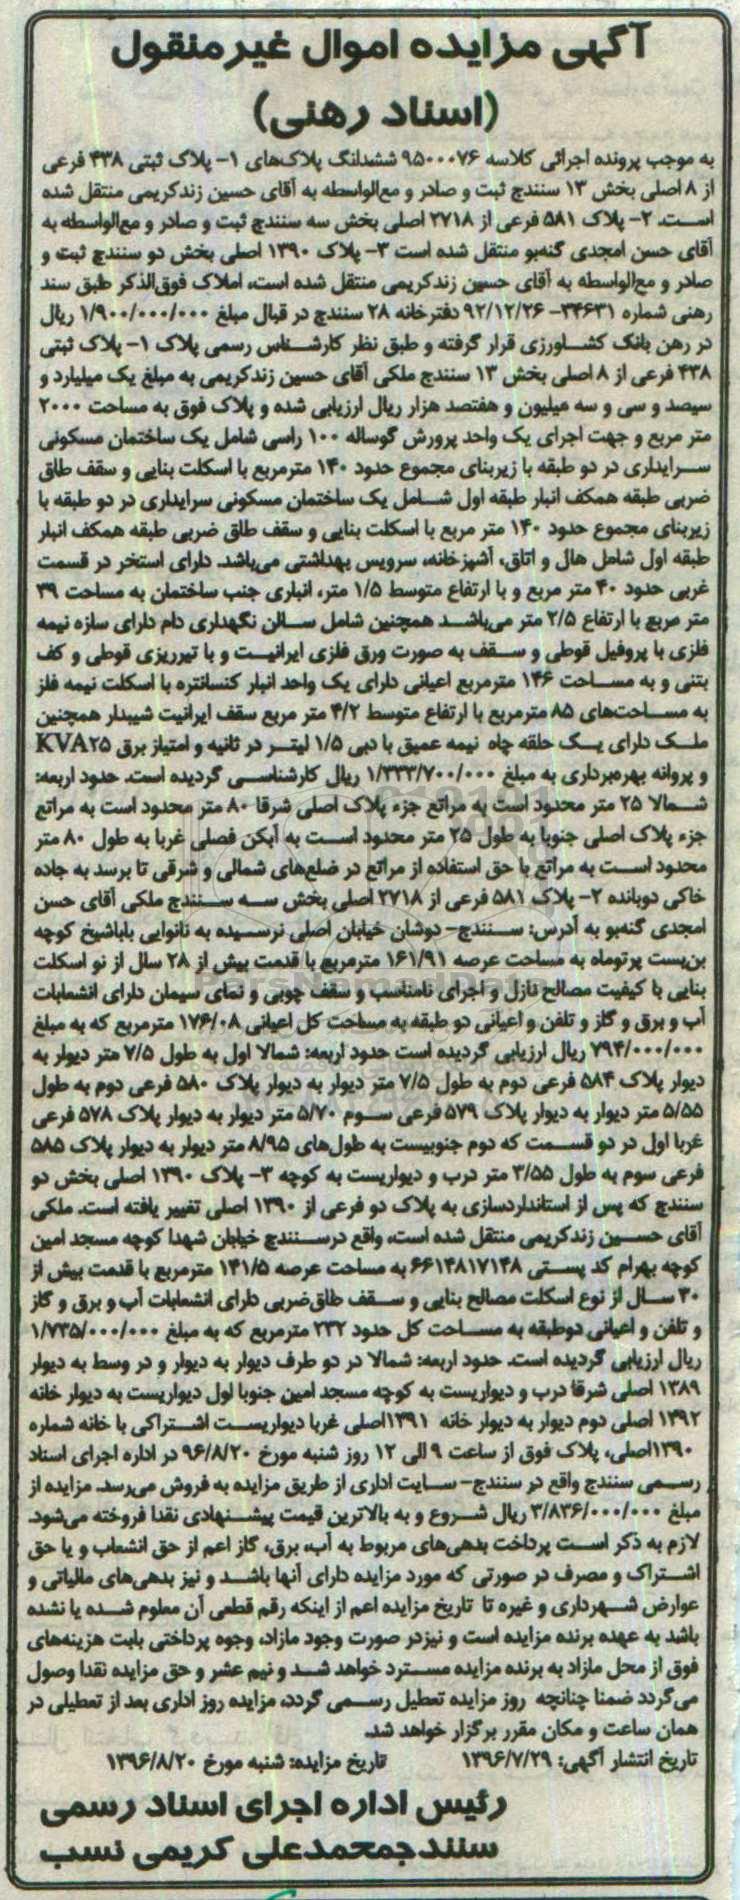 آگهی مزایده اموال غیرمنقول
(اسناد رهنی)
به موجب پرونده اجرائی کلاسه ۹۵۰۰۰۷۶ ششدانگ پلاک‌های ۱- پلاک ثبتی ۴۳۸ فرعی
از ۸ اصلی بخش ۱۳ سنندج ثبت و صادر و مع‌الواسطه به آقای حسین زندکریمی منتقل شده
است. ۲- پلاک ۵۸۱ فرعی از ۲۷۱۸ اصلی بخش سه سنندج ثبت و صادر و مع‌الواسطه به
آقای حسن امجدی گنه‌بو منتقل شده است ۳- پلاک ۱۳۹۰ اصلی بخش دو سنندج ثبت و
صادر و مع‌الواسطه به آقای حسین زندکریمی منتقل شده است، املاک فوق‌الذکر طبق سند
رهنی شماره ۳۴۶۳۱- ۹۲/۱۲/۲۶ دفترخانه ۲۸ سنندج در قبال مبلغ ۱/۹۰۰/۰۰۰/۰۰۰ ریال
در رهن بانک کشاورزی قرار گرفته و طبق نظر کارشناس رسمی پلاک ۱- پلاک ثبتی
۴۳۸ فرعی از ۸ اصلی بخش ۱۳ سنندج ملکی آقای حسین زندکریمی به مبلغ یک میلیارد و
سیصد و سی و سه میلیون و هفتصد هزار ریال ارزیابی شده و پلاک فوق به مساحت ۲۰۰۰
متر مربع و جهت اجرای یک واحد پرورش گوساله ۱۰۰ راسی شامل یک ساختمان مسکونی
سرایداری در دو طبقه با زیربنای مجموع حدود ۱۴۰ مترمربع با اسکلت بنایی و سقف طاق
ضربی طبقه همکف انبار طبقه اول شامل یک ساختمان مسکونی سرایداری در دو طبقه با
زیربنای مجموع حدود ۱۴۰ متر مربع با اسکلت بنایی و سقف طاق ضربی طبقه همکف انبار
طبقه اول شامل هال و اتاق، آشپزخانه، سرویس بهداشتی می‌باشد. دارای استخر در قسمت
غربی حدود ۴۰ متر مربع و با ارتفاع متوسط ۱/۵ متر، انباری جنب ساختمان به مساحت ۳۹
متر مربع با ارتفاع ۲/۵ متر می‌باشد همچنین شامل سالن نگهداری دام دارای سازه نیمه
فلزی با پروفیل قوطی و سقف به صورت ورق فلزی ایرانیت و با تیرریزی قوطی و کف
بتنی و به مساحت ۱۴۶ مترمربع اعیانی دارای یک واحد انبار کنسانتره با اسکلت نیمه فلز
به مساحت‌های ۸۵ مترمربع با ارتفاع متوسط ۴/۲ متر مربع سقف ایرانیت شیبدار همچنین
ملک دارای یک حلقه چاه نیمه عمیق با دبی ۱/۵ لیتر در ثانیه و امتیاز برق KVA۲۵
و پروانه بهره‌برداری به مبلغ ۱/۳۳۳/۷۰۰/۰۰۰ ریال کارشناسی گردیده است. حدود اربعه:
شمالا ۲۵ متر محدود است به مراتع جزء پلاک اصلی شرقا ۸۰ متر محدود است به مراتع
جزء پلاک اصلی جنوبا به طول ۲۵ متر محدود است به آبکن فصلی غربا به طول ۸۰ متر
محدود است به مراتع با حق استفاده از مراتع در ضلع‌های شمالی و شرقی تا برسد به جاده
خاکی دوبانده ۲- پلاک ۵۸۱ فرعی از ۲۷۱۸ اصلی بخش سه سنندج ملکی آقای حسن
امجدی گنه‌بو به آدرس: سنندج- دوشان خیابان اصلی نرسیده به نانوایی باباشیخ کوچه
بن‌بست پرتوماه به مساحت عرصه ۱۶۱/۹۱ مترمربع با قدمت بیش از ۲۸ سال از نو اسکلت
بنایی با کیفیت مصالح نازل و اجرای نامناسب و سقف چوبی و نمای سیمان دارای انشعابات
آب و برق و گاز و تلفن و اعیانی دو طبقه به مساحت کل اعیانی ۱۷۶/۰۸ مترمربع که به مبلغ
۷۹۴/۰۰۰/۰۰۰ ریال ارزیابی گردیده است حدود اربعه: شمالا اول به طول ۷/۵ متر دیوار به
دیوار پلاک ۵۸۴ فرعی دوم به طول ۷/۵ متر دیوار به دیوار پلاک ۵۸۰ فرعی دوم به طول
۵/۵۵ متر دیوار به دیوار پلاک ۵۷۹ فرعی سوم ۵/۷۰ متر دیوار به دیوار پلاک ۵۷۸ فرعی
غربا اول در دو قسمت که دوم جنوبیست به طول‌های ۸/۹۵ متر دیوار به دیوار پلاک ۵۸۵
فرعی سوم به طول ۳/۵۵ متر درب و دیواریست به کوچه ۳- پلاک ۱۳۹۰ اصلی بخش دو
سنندج که پس از استانداردسازی به پلاک دو فرعی از ۱۳۹۰ اصلی تغییر یافته است. ملکی
آقای حسین زندکریمی منتقل شده است، واقع درسنندج خیابان شهدا کوچه مسجد امین
کوچه بهرام کد پستی ۶۶۱۴۸۱۷۱۴۸ به مساحت عرصه ۱۴۱/۵ مترمربع با قدمت بیش از
۳۰ سال از نوع اسکلت مصالح بنایی و سقف طاق‌ضربی دارای انشعابات آب و برق و گاز
و تلفن و اعیانی دوطبقه به مساحت کل حدود ۲۳۲ مترمربع که به مبلغ ۱/۷۳۵/۰۰۰/۰۰۰
ریال ارزیابی گردیده است. حدود اربعه: شمالا در دو طرف دیوار به دیوار و در وسط به دیوار
۱۳۸۹ اصلی شرقا درب و دیواریست به کوچه مسجد امین جنوبا اول دیواریست به دیوار خانه
۱۳۹۲ اصلی دوم دیوار به دیوار خانه ۱۳۹۱اصلی غربا دیواریست اشتراکی با خانه شماره
۱۳۹۰اصلی، پلاک فوق از ساعت ۹ الی ۱۲ روز شنبه مورخ ۹۶/۸/۲۰ در اداره اجرای اسناد
رسمی سنندج واقع در سنندج- سایت اداری از طریق مزایده به فروش می‌رسد. مزایده از
مبلغ ۳/۸۳۶/۰۰۰/۰۰۰ ریال شروع و به بالاترین قیمت پیشنهادی نقدا فروخته می‌شود.
لازم به ذکر است پرداخت بدهی‌های مربوط به آب، برق، گاز اعم از حق انشعاب و یا حق
اشتراک و مصرف در صورتی که مورد مزایده دارای آنها باشد و نیز بدهی‌های مالیاتی و
عوارض شهرداری و غیره تا تاریخ مزایده اعم از اینکه رقم قطعی آن معلوم شده یا نشده
باشد به عهده برنده مزایده است و نیزدر صورت وجود مازاد، وجوه پرداختی بابت هزینه‌های
فوق از محل مازاد به برنده مزایده مسترد خواهد شد و نیم عشر و حق مزایده نقدا وصول
می‌گردد ضمنا چنانچه روز مزایده تعطیل رسمی گردد، مزایده روز اداری بعد از تعطیلی در
همان ساعت و مکان مقرر برگزار خواهد شد.
تاریخ انتشار آگهی: ۱۳۹۶/۷/۲۹ تاریخ مزایده: شنبه مورخ ۱۳۹۶/۸/۲۰
رئیس اداره اجرای اسناد رسمی
سنندجمحمدعلی کریمی نسب